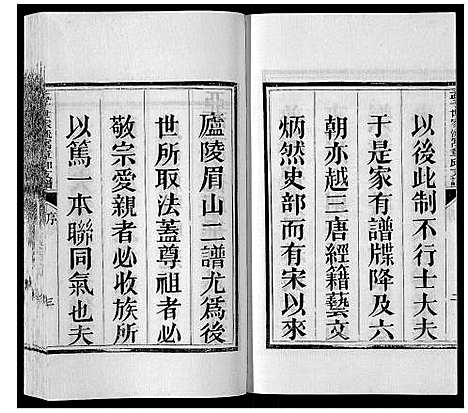 以後此制不行士大夫
于是家有譜牒降及六
朝亦越三唐經籍藝文
炳然史部而有宋以來
廬陵眉山二譜尤爲後
世所取法蓋尊祖者必
敬宗愛親者必收族所
以篤一本聯同氣也夫
序
三